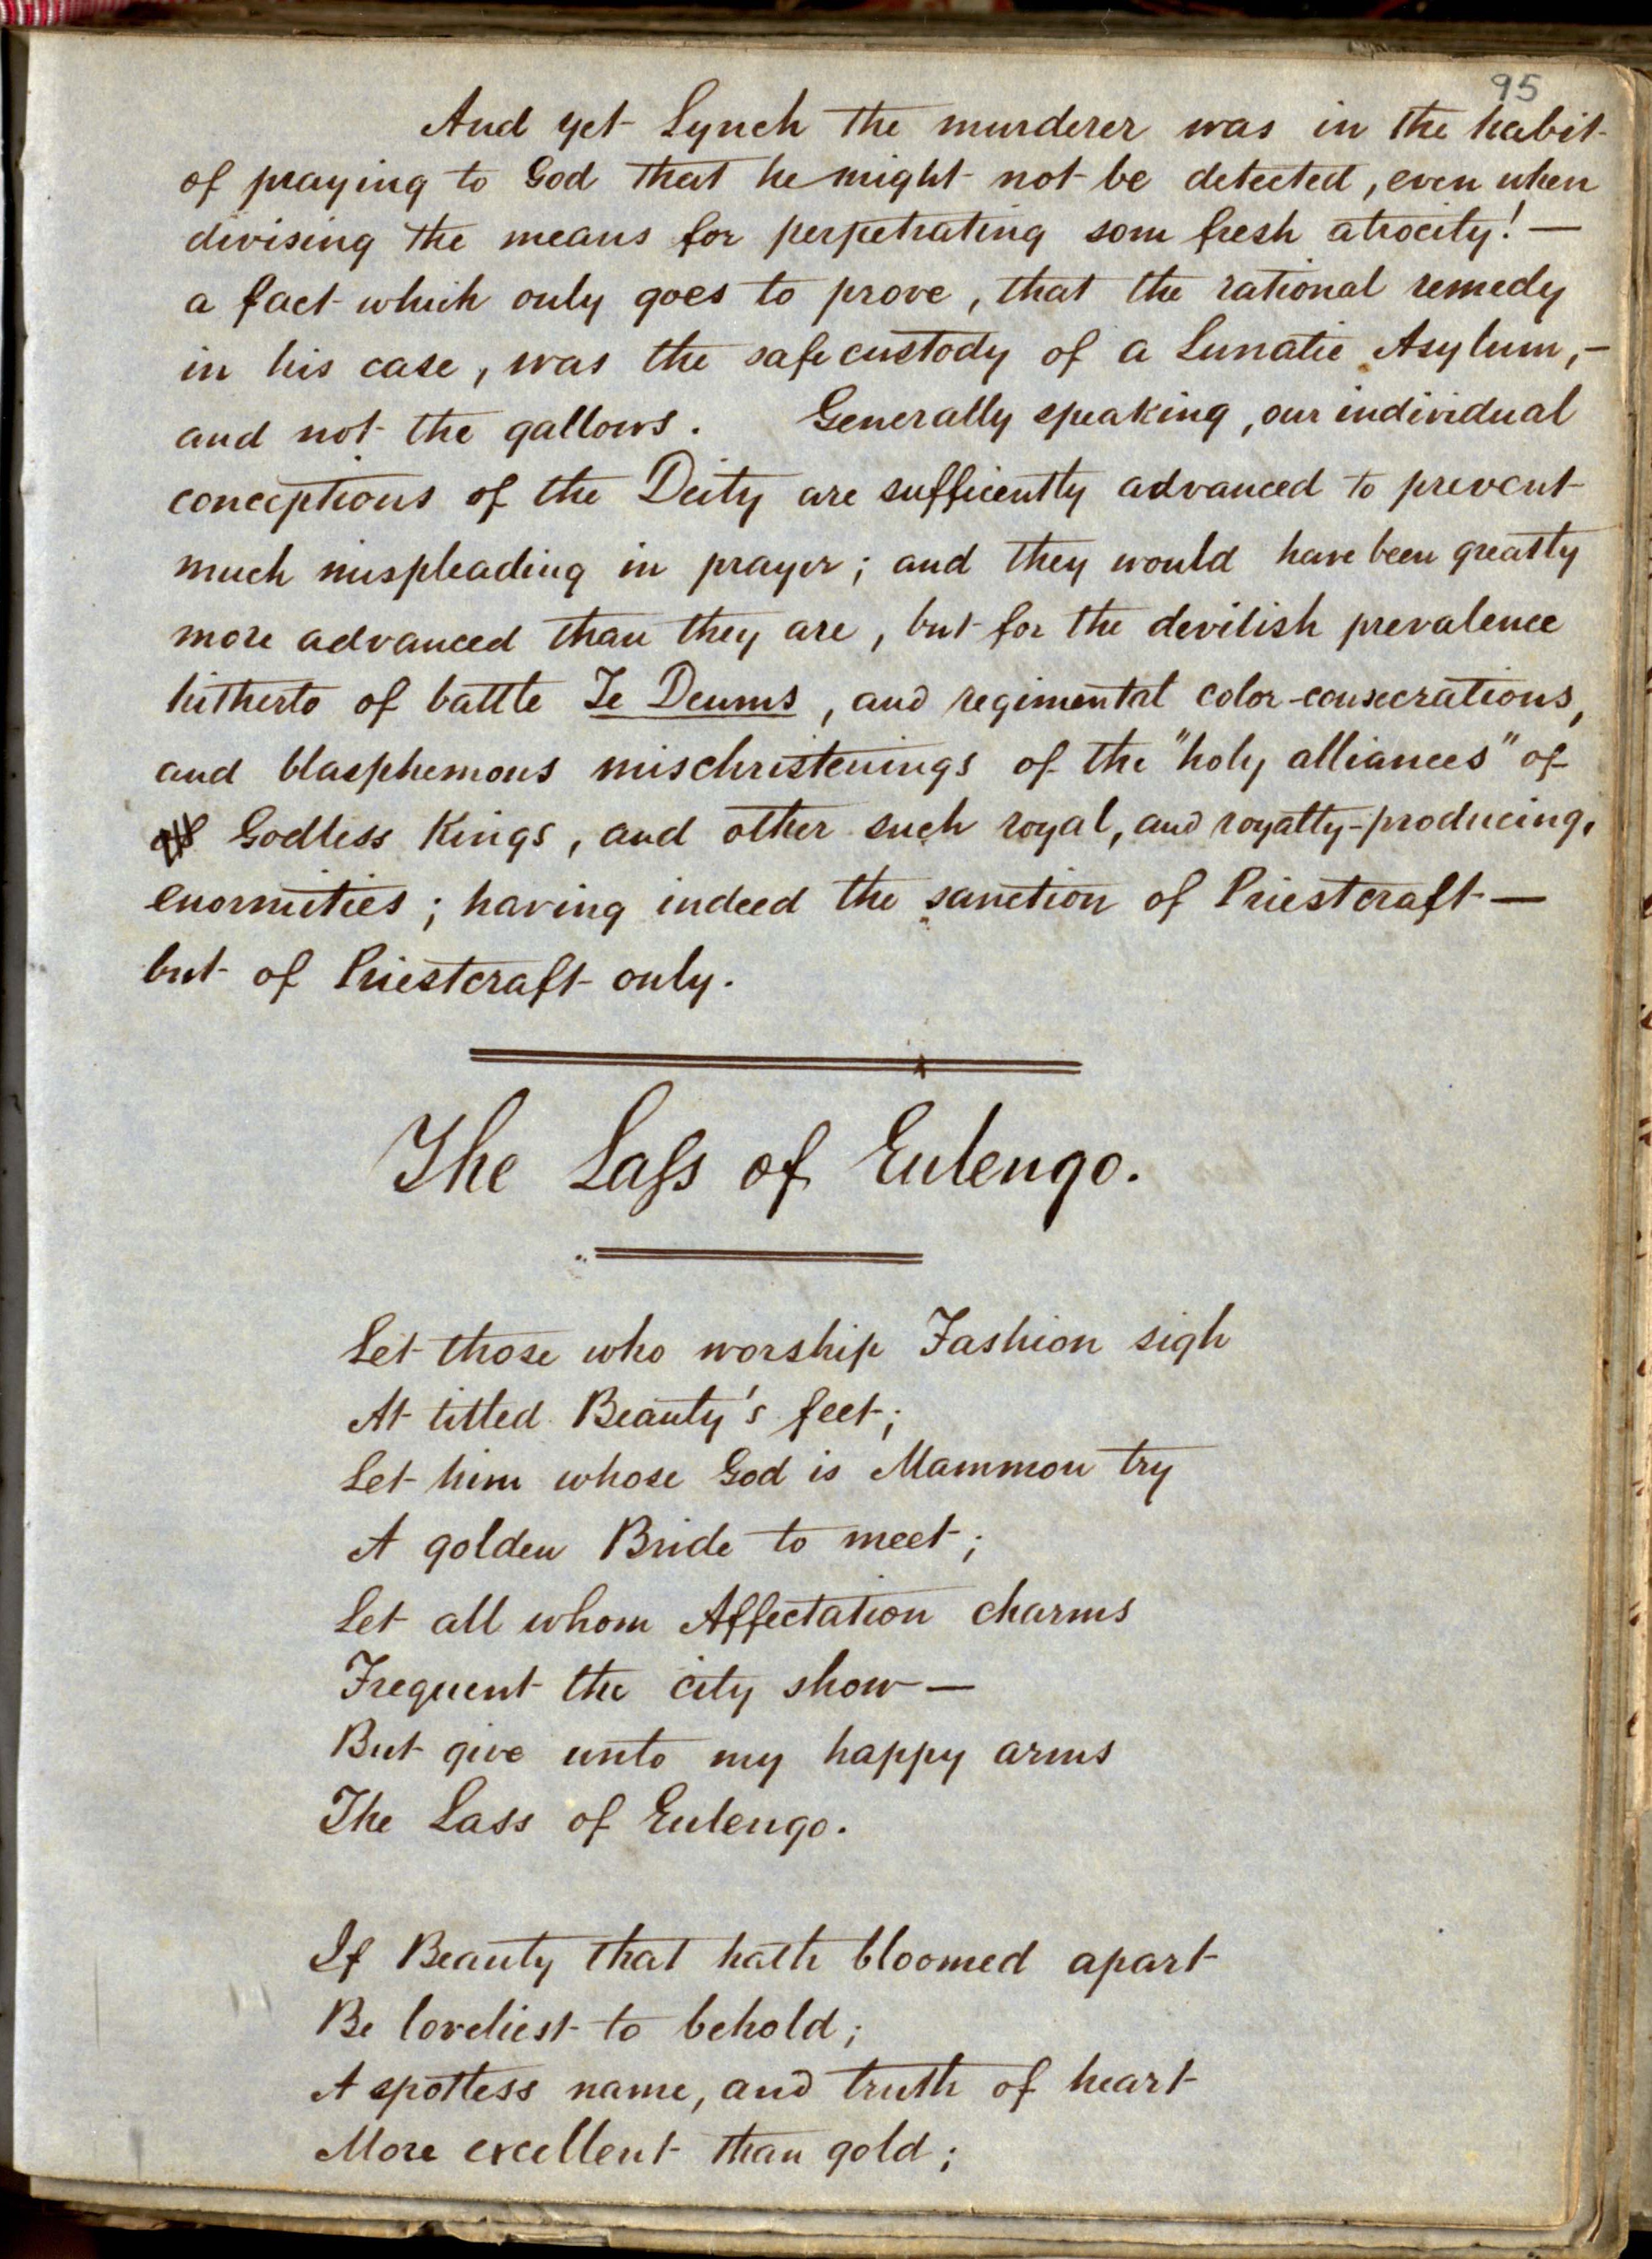 95
And yet Lynch the murderer was in the habit
of praying to God that he might not be detected, even when
divising the means for perpetrating som fresh atrocity! —
a fact which only goes to prove, that the rational remedy
in his case, was the safe custody of a Lunatic Asylum, —
and not the gallows. Generally speaking, our individual
conceptions of the Deity are sufficently advanced to prevent
much mispleading in prayer; and they would have been greatly
more advanced than they are, but for the devilish prevalence
hitherto of battle Te Deums, and regimental color-consecrations,
and blasphemous mischristenings of the "holy alliances" of
Godless Kings, and other such royal, and royalty-producing,
enormities; having indeed the sanction of Priestcraft —
but of Priestcraft only.
The Lass of Eulengo.
Let those who worship Fashion sigh
At titled Beauty's feet;
Let him whose God is Mammon try
A golden Bride to meet;
Let all whom Affectation charms
Frequent the city show —
But give unto my happy arms
The Lass of Eulengo.
If Beauty that hath bloomed apart
Be loveliest to behold;
A spotless name, and truth of heart
More excellent than gold;